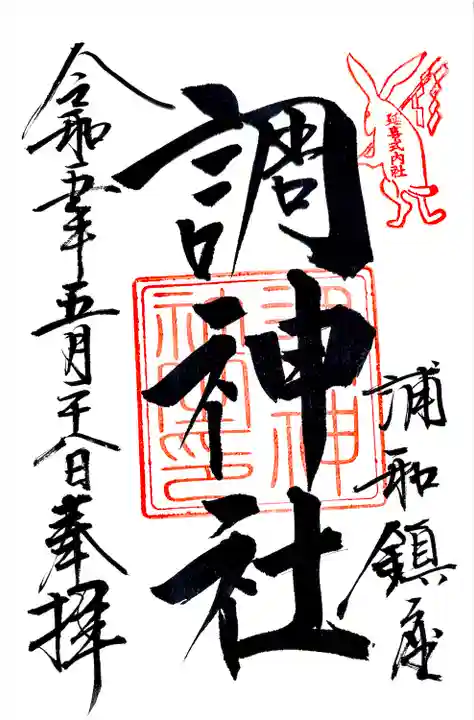 延喜式内社
浦和鎮座
調神社
令和五年五月二十八日奉拝